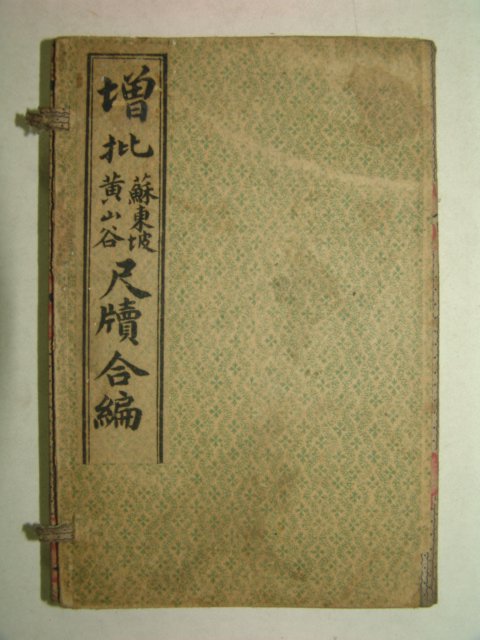 增批
蘇東坡
黄山谷
尺牘合編